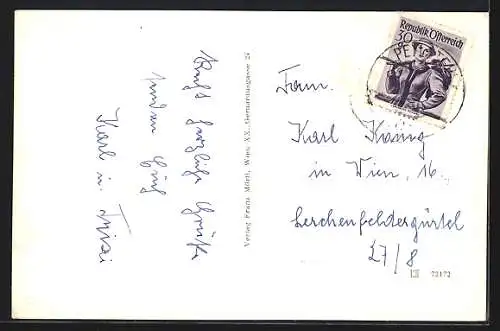 Recht herzliche Grüße
senden Euch
Karl u. Trixi
Verlag Franz Mörtl, Wien XX., Gerhardusgasse 24
Republik Österreich
30
Fam.
Karl König
in Wien, 16.
Lerchenfeldergürtel
27/8